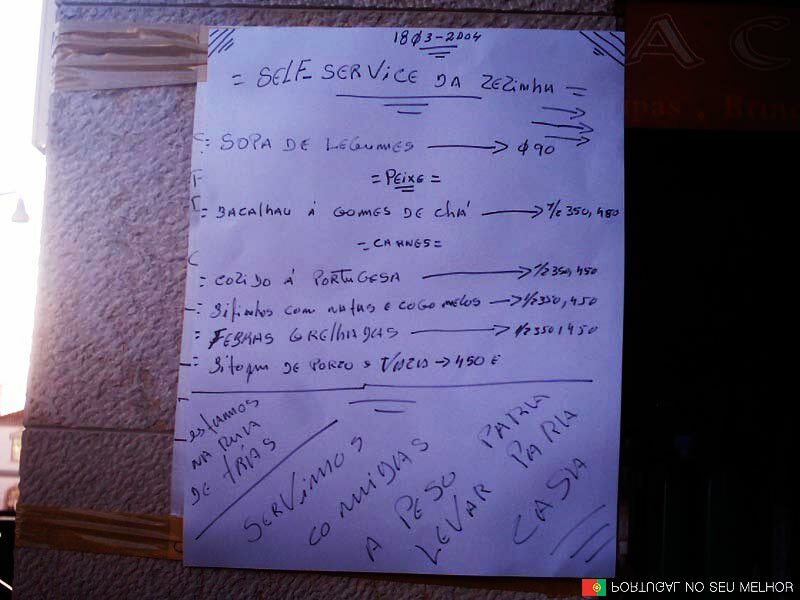 18Ø3-2004
= SELF-SERVICE DA ZEZINHA =
= SOPA DE LEGUMES → Ø90
= PEIXE =
= BACALHAU Á GOMES DE CHÁ → 1/2 350, 480
= CARNES =
= COZIDO Á PORTUGESA → 1/2 350, 450
= Bifinhos com natas e cogomelos → 1/2 350, 450
= FEBRAS GRELHADAS → 1/2 350, 450
= Bitoqui DE PORCO → 450 €
estamos
NA RUA
DE TRÁS
SERVIMOS
COMIDAS
A PESO PARA
LEVAR PARA
CASA
A C
pas , Brin
PORTUGAL NO SEU MELHOR